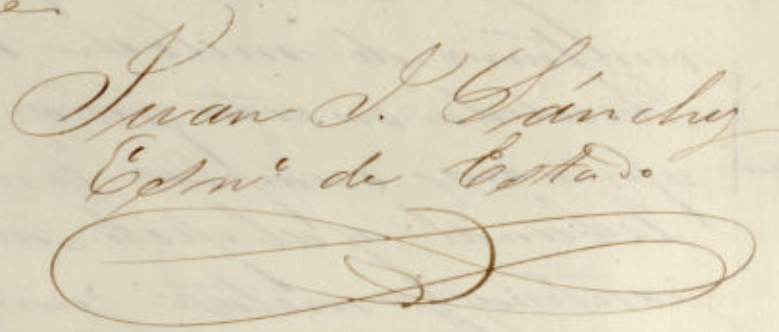 Juan J. Sánchez
Esno de Estado.